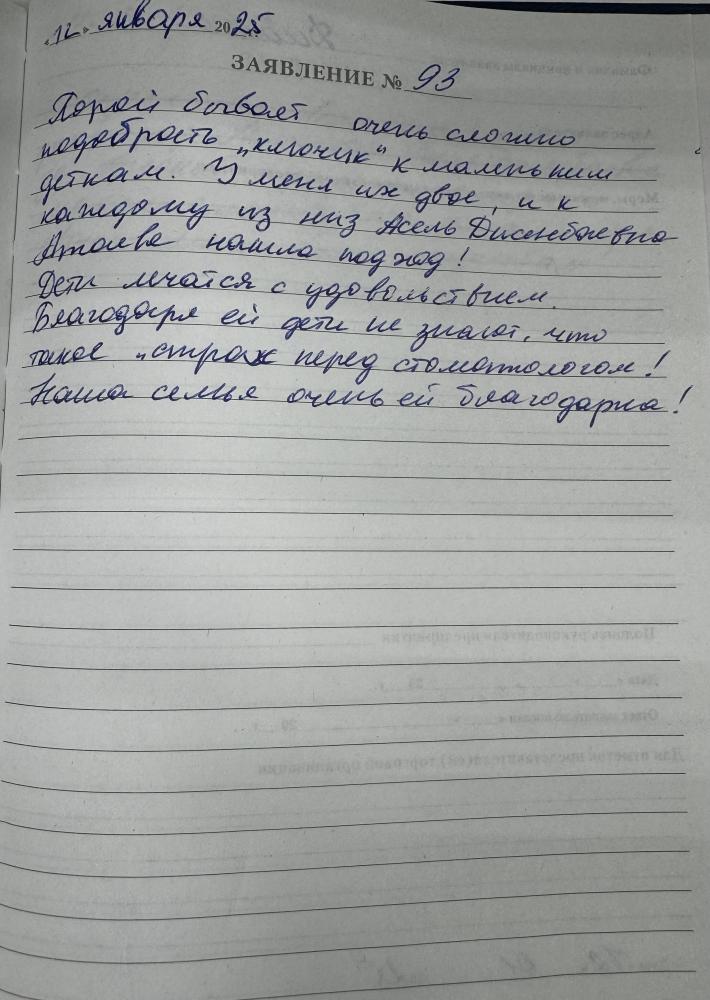 «12» января 2025
ЗАЯВЛЕНИЕ № 93
Порой бывает очень сложно
подобрать „ключик“ к маленьким
деткам. У меня их двое, и к
каждому из них Асель Дисенбаевна
Атаева нашла подход!
Дети лечатся с удовольствием.
Благодаря ей дети не знают, что
такое „страх перед стоматологом!
Наша семья очень ей благодарна!